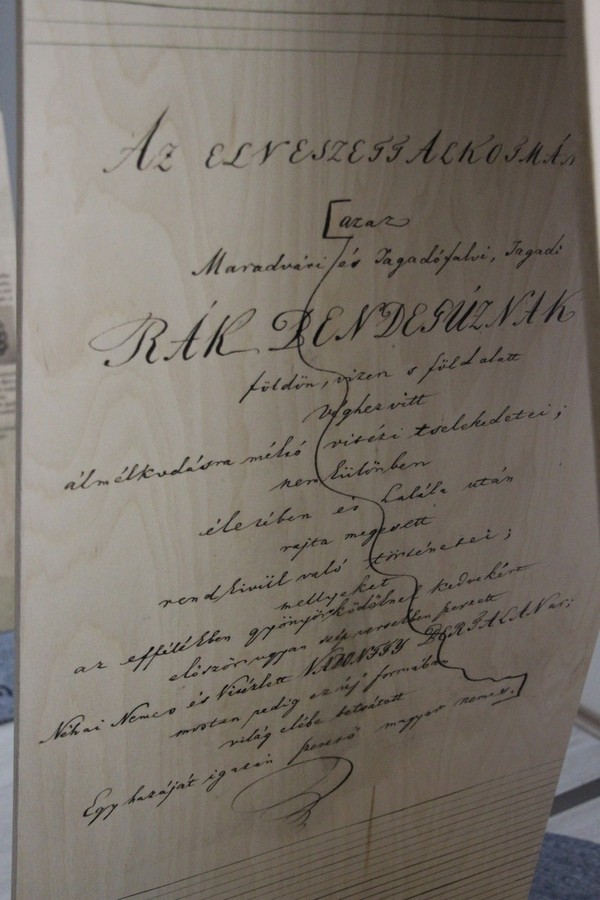 AZ ELVESZETT ALKOTMÁN
[azaz
Maradvári és Tagadófalvi, Tagadi
RÁK BENDEGÚZNAK
földön, vizen s föld alatt
véghez vitt
álmélkodásra méltó vitézi tselekedetei;
nem különben
életében és halála után
rajta megesett
rendkivül való történetei;
mellyeket
az effélékben gyönyörködőknek kedvekért
először ugyan szép versekben szerzett
Néhai Nemes és Vitézlett VADONFFY BERTALAN úr;
mostan pedig ez új formában
világ elébe botsátott
Egy hazáját igazán szerető magyar nemes.]